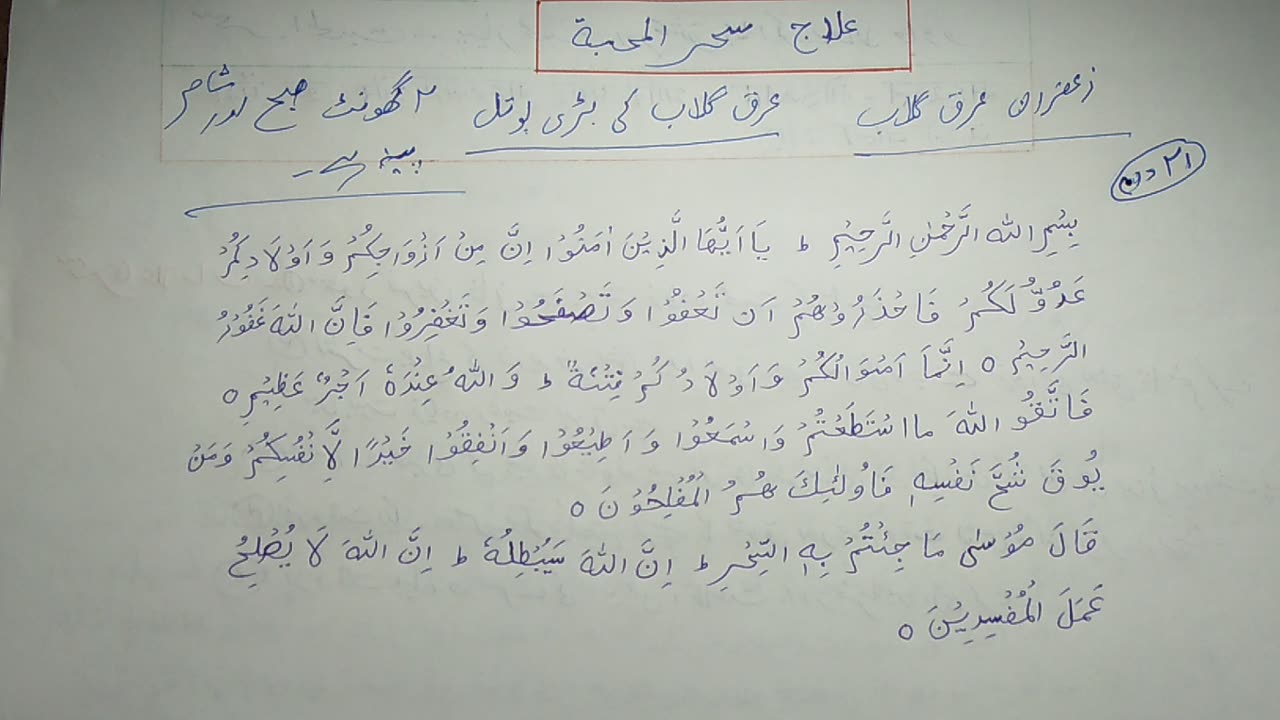 علاج سحر المحبة
زعفران عرق گلاب عرق گلاب کی بڑی بوتل ۲ گھونٹ صبح اور شام
پینا ہے۔
۲۱ دن
بِسْمِ اللهِ الرَّحْمٰنِ الرَّحِيْمِ ط يَا اَيُّهَا الَّذِيْنَ اٰمَنُوْا اِنَّ مِنْ اَزْوَاجِكُمْ وَ اَوْلَادِكُمْ
عَدُوٌّ لَكُمْ فَاحْذَرُوْهُمْ اَن تَعْفُوْا وَ تَصْفَحُوْا وَ تَغْفِرُوْا فَاِنَّ اللهَ غَفُوْرُ
الرَّحِيْمُ ٥ اِنَّمَا اَمْوَالُكُمْ وَ اَوْلَادُكُمْ فِتْنَةٌ ط وَ اللهُ عِنْدَهٗ اَجْرٌ عَظِيْمٌ ٥
فَاتَّقُو اللهَ مااسْتَطَعْتُمْ وَاسْمَعُوْا وَ اَطِيْعُوْا وَ اَنْفِقُوْا خَيْرًا لَّاَنْفُسِكُمْ وَمَنْ
يُوْقَ شُحَّ نَفْسِهٖ فَاُولٰئِكَ هُمُ الْمُفْلِحُوْنَ ٥
قَالَ مُوْسٰى مَا جِئْتُمْ بِهِ السِّحْرِ ط اِنَّ اللهَ سَيُبْطِلُهٗ ط اِنَّ اللهَ لَا يُصْلِحُ
عَمَلَ الْمُفْسِدِيْنَ ٥